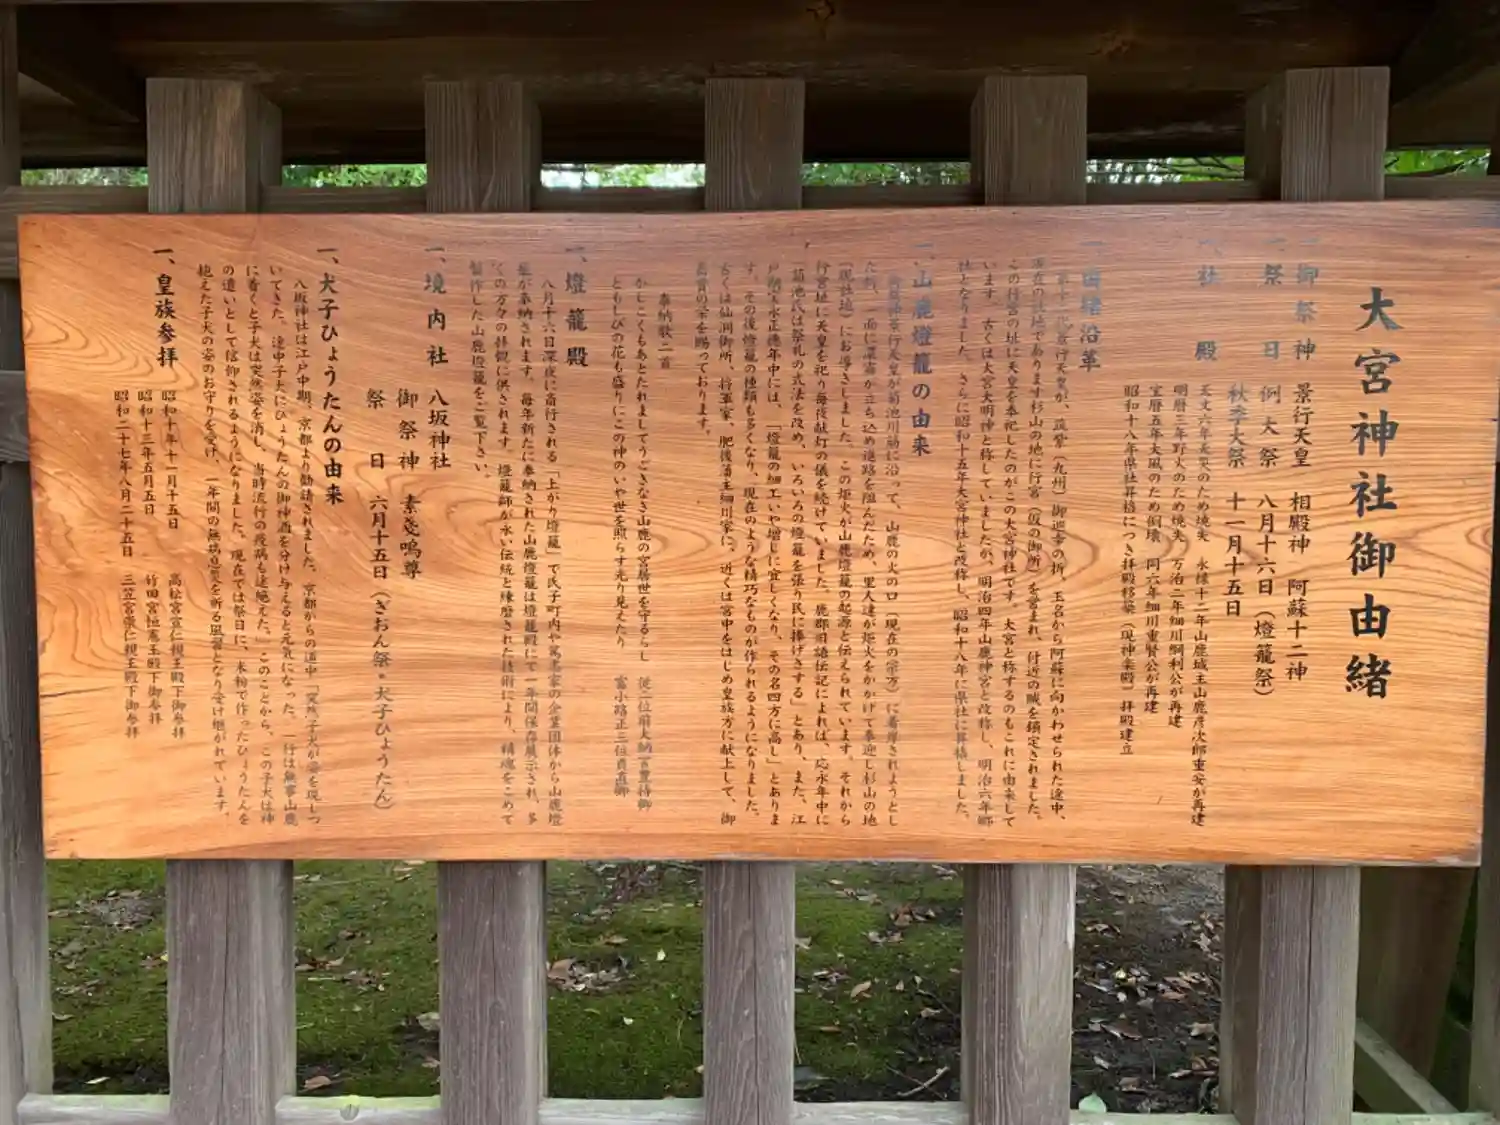 大宮神社御由緒
一、御祭神 景行天皇 相殿神 阿蘇十二神
一、祭日 例大祭 八月十六日(燈籠祭)
秋季大祭 十一月十五日
一、社殿 天文六年兵災のため焼失 永禄十二年山鹿城主山鹿彦次郎重安が再建
明暦三年野火のため焼失 万治二年細川綱利公が再建
宝暦五年大風のため倒壊 同六年細川重賢公が再建
昭和十八年県社昇格につき拝殿移築(現神楽殿)拝殿建立
一、由緒沿革
第十二代景行天皇が、筑紫(九州)御巡幸の折、玉名から阿蘇に向かわせられた途中、
現在の社地であります杉山の地に行宮(仮の御所)を営まれ、付近の賊を鎮定されました。
この行宮の址に天皇を奉祀したのがこの大宮神社です。大宮と称するのもこれに由来して
います。古くは大宮大明神と称していましたが、明治四年山鹿神宮と改称し、明治六年郷
社となりました。さらに昭和十五年大宮神社と改称し、昭和十八年に県社に昇格しました。
一、山鹿燈籠の由来
景行天皇が菊池川筋に沿って、山鹿の火の口(現在の宗方)に着岸されようとし
た時、一面に濃霧が立ち込め進路を阻んだため、里人達が炬火をかかげて奉迎し杉山の地
(現社地)にお導きしました。この炬火が山鹿燈籠の起源と伝えられています。それから
行宮址に天皇を祀り毎夜献灯の儀を続けていました。鹿郡旧語伝記によれば、応永年中に
「菊池氏は祭礼の式法を改め、いろいろの燈籠を張り民に捧げさする」とあり、また、江
戸期宝永正徳年中には、「燈籠の細工いや増しに宜しくなり、その名四方に高し」とありま
す。その後燈籠の種類も多くなり、現在のような精巧なものが作られるようになりました。
古くは仙洞御所、将軍家、肥後藩主細川家に、近くは宮中をはじめ皇族方に献上して、御
嘉賞の栄を賜っております。
奉納歌二首
かしこくもあとたれましてうごきなき山鹿の宮居世を守るらし 従二位前大納言豊持卿
ともしびの花も盛りにこの神のいや世を照らす光り見えたり 富小路正三位貞直卿
一、燈籠殿
八月十六日深夜に斎行される「上がり燈籠」で氏子町内や篤志家の企業団体から山鹿燈
籠が奉納されます。毎年新たに奉納された山鹿燈籠は燈籠殿にて一年間保存展示され、多
くの方々の拝観に供されます。燈籠師が永い伝統と練磨された技術により、精魂をこめて
製作した山鹿燈籠をご覧下さい。
一、境内社 八坂神社
御祭神 素戔嗚尊
祭日 六月十五日(ぎおん祭・犬子ひょうたん)
一、犬子ひょうたんの由来
八坂神社は江戸中期、京都より勧請されました。京都からの道中「突然子犬が姿を現しつ
いてきた。途中子犬にひょうたんの御神酒を分け与えると元気になった。一行は無事山鹿
に着くと子犬は突然姿を消し、当時流行の疫病も途絶えた。」このことから、この子犬は神
の遣いとして信仰されるようになりました。現在では祭日に、木粉で作ったひょうたんを
抱えた子犬の姿のお守りを受け、一年間の無病息災を祈る風習となり受け継がれています。
一、皇族参拝
昭和十年十一月十五日 高松宮宣仁親王殿下御参拝
昭和十三年五月五日 竹田宮恒憲王殿下御参拝
昭和二十七年八月二十五日 三笠宮崇仁親王殿下御参拝